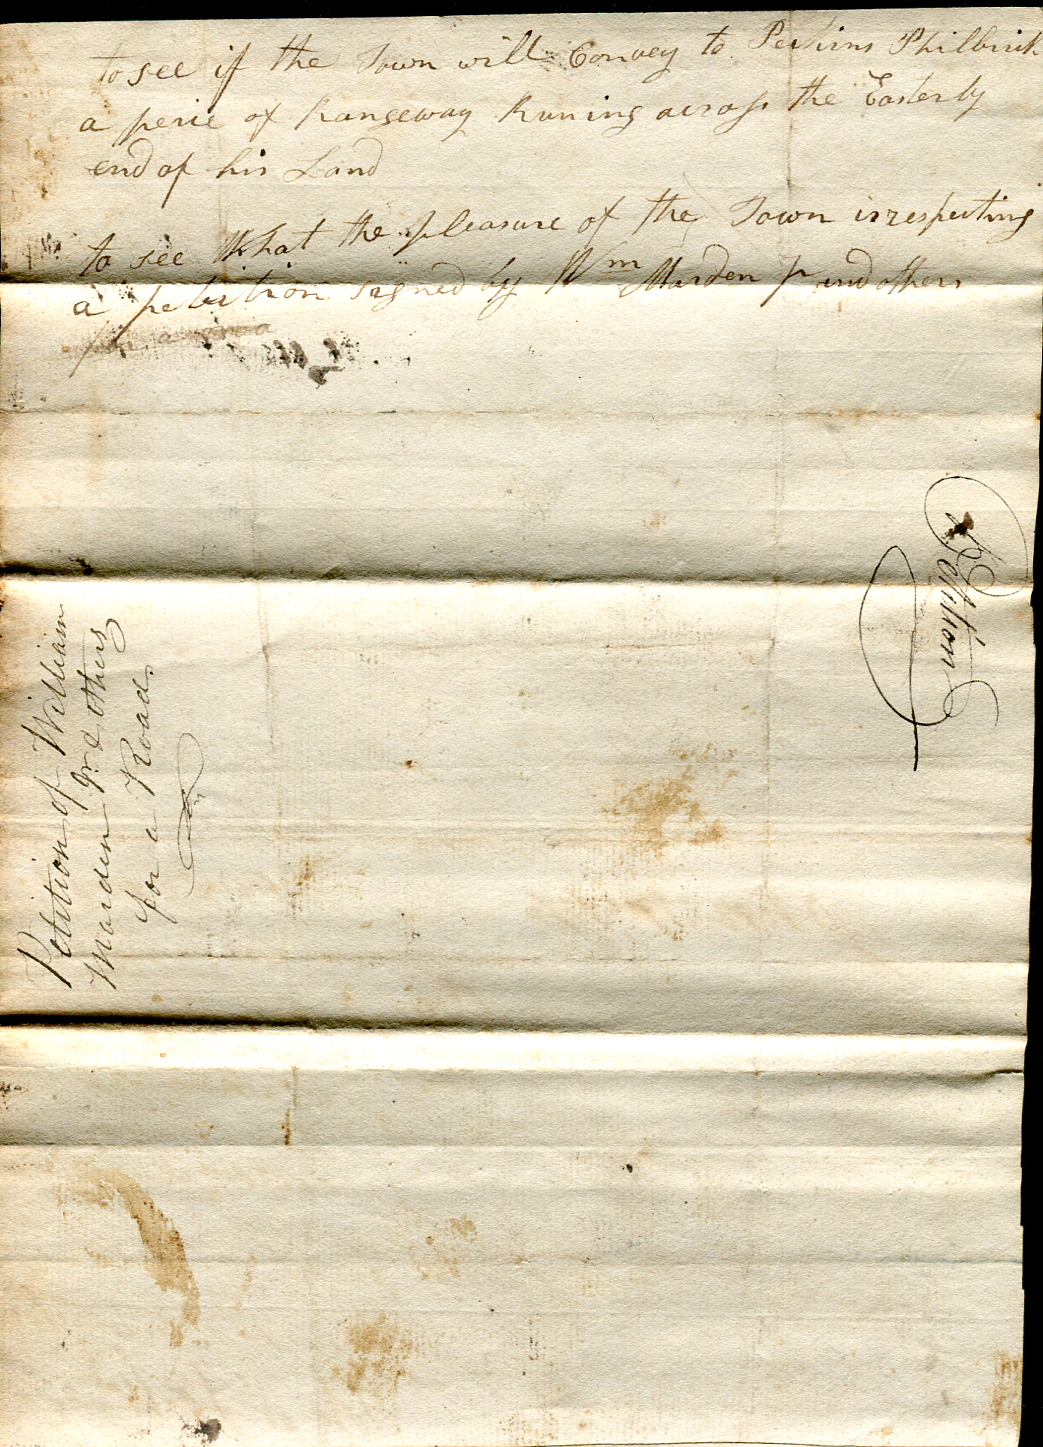 to see if the Town will Convey to Perkins Philbrick
a peice of Rangeway Runing across the Easterly
end of his Land
to see What the pleasure of the Town is respecting
a petition signed by Wm Marden Jr and others
for a
Petition
Petition of William
Marden Jr. & others
for a Road.